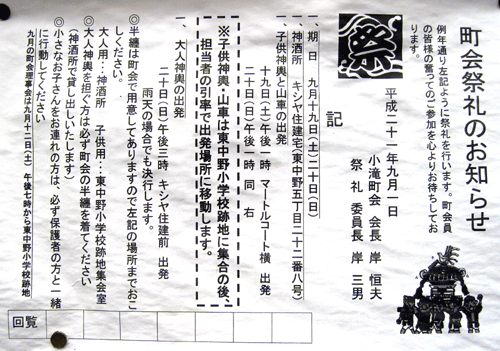 町会祭礼のお知らせ
例年通り左記ように祭礼を行います。町会員
の皆様の奮ってのご参加を心よりお待ちしてお
ります。
祭
平成二十一年九月一日
小滝町会 会長 岸 恒夫
祭礼 委員長 岸 三男
記
一、期 日 九月十九日(土)二十日(日)
一、神酒所 キシヤ住宅(東中野五丁目二十二番八号)
一、子供神輿と山車の出発
十九日(土)午後一時 マートルコート横 出発
二十日(日)午後一時 同 右
※子供神輿・山車は東中野小学校跡地に集合の後、
担当者の引率で出発場所に移動します。
一、大人神輿の出発
二十日(日)午後三時 キシヤ住建前 出発
雨天の場合でも決行します。
◎半纏は町会で用意してありますので左記の場所までおこ
しください。
大人用:神酒所 子供用:東中野小学校跡地集会室
◎大人神輿を担ぐ方は必ず町会の半纏を着てください
(神酒所で貸し出しいたします)
◎小さなお子さんをお連れの方は、必ず保護者の方と一緒
に行動してください
九月の町会理事会は九月十二日(土)午後七時から東中野小学校跡地
回覧